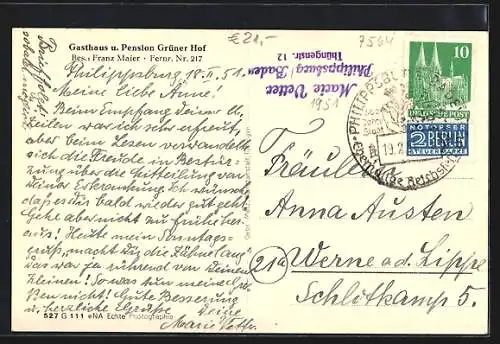 Gasthaus u. Pension Grüner Hof
Bes.: Franz Maier · Fernr. Nr. 217
Philippsburg 18.II.51.
Meine liebe Anne!
Beim Empfang deiner l.
Zeilen war ich sehr erfreut,
aber beim Lesen verwandelte
sich die Freude in Bestür-
zung über die Mitteilung von
deiner Erkrankung. Ich wünsche
daß es dir bald wieder gut geht
Gehe aber nicht zu früh heraus!
Heute mein Sonntags-
gruß, macht dir die Zähne lang
das war ja rührend von deinen
Kleinen! So was tun meine
nicht! Gute Besserung
u. herzliche Grüße
Deine
Marie Vetter
527 G 111 eNA Echte Photographie
Brief folgt
€ 21,-
7564
Marie Vetter
Philippsburg / Baden
Thüngenstr. 12
1951
10
DEUTSCHE POST
NOTOPFER
2 BERLIN
STEUERMARKE
PHILIPPSBURG
19.2
Fräulein
Anna Austen
(21a) Werne a. d. Lippe
Schlitkamp 5.